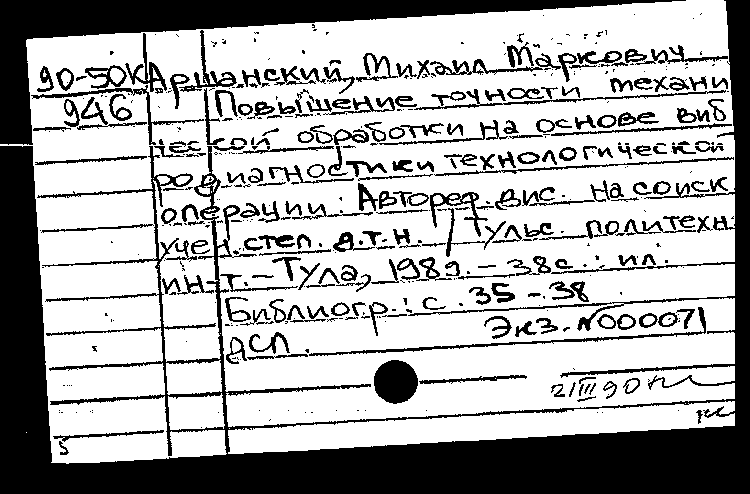 90-50К Аршанский, Михаил Маркович.
946 Повышение точности механи
ческой обработки на основе виб
родиагностики технологической
операции: Автореф. дис. на соиск
учен. степ. д.т.н. / Тульс. политехн
ин-т. – Тула, 1989. – 38с.: ил.
Библиогр.: с. 35 – 38.
ДСП. Экз. N000071
21/III 90
5